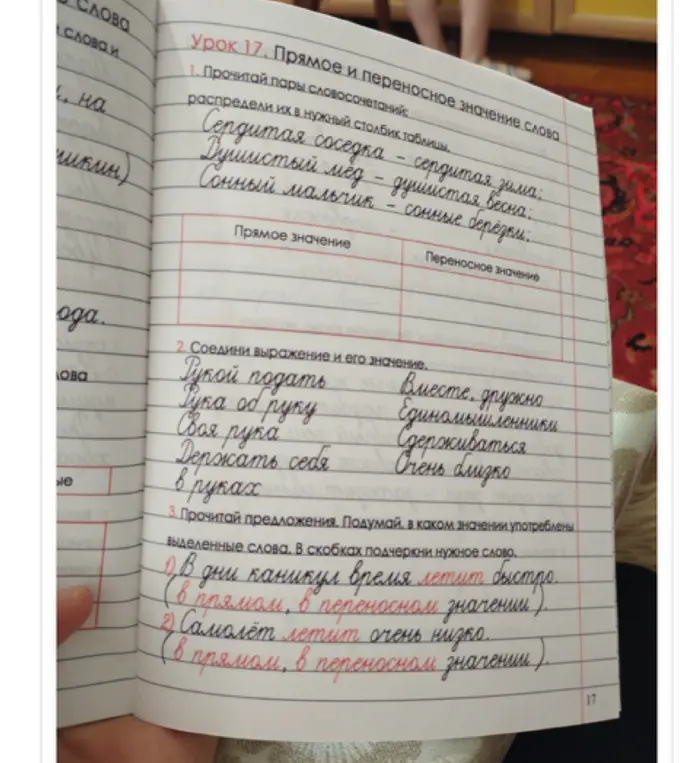 слова
слова и
, на
шкин)
ода.
лова
ые
Урок 17. Прямое и переносное значение слова
1. Прочитай пары словосочетаний;
распредели их в нужный столбик таблицы.
Сердитая соседка – сердитая зима;
Душистый мёд – душистая весна;
Сонный мальчик – сонные берёзки;
Прямое значение Переносное значение
2. Соедини выражение и его значение.
Рукой подать Вместе, дружно
Рука об руку Единомышленники
Своя рука Сдерживаться
Держать себя Очень близко
в руках
3. Прочитай предложения. Подумай, в каком значении употреблены
выделенные слова. В скобках подчеркни нужное слово.
1) В дни каникул время летит быстро.
(в прямом, в переносном значении).
2) Самолёт летит очень низко.
(в прямом, в переносном значении).
17